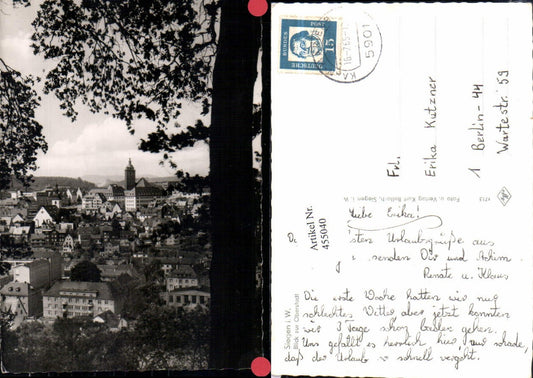 15
DEUTSCHE
BUNDES
POST
5901
Frl.
Erika Kutzner
1 Berlin-44
Wartestr. 59
Foto u. Verlag Kurt
Siegen i. W.
1713
Siegen i. W.
Blick zur Oberstadt
Artikel Nr.
455040
Liebe Erika!
sten Urlaubsgrüße aus
senden Dir und Achim
Renate u. Klaus
Die erste Woche hatten wir nur
schlechtes Wetter aber jetzt konnten
wir 3 Tage schon baden gehen.
Uns gefällt es herrlich hier, nur schade,
daß der Urlaub so schnell vergeht.